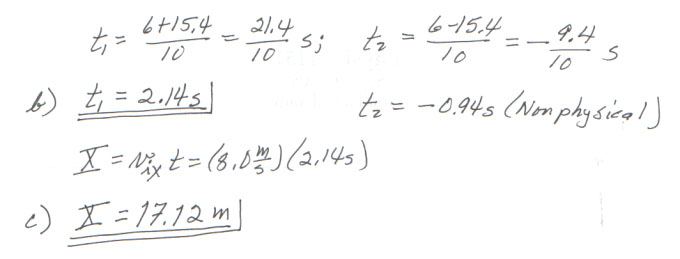 t₁ = (6+15.4)/10 = 21.4/10 s; t₂ = (6-15.4)/10 = -9.4/10 s
b) t₁ = 2.14s t₂ = -0.94s (Nonphysical)
X = v_ix t = (8.0 m/s)(2.14s)
c) X = 17.12 m